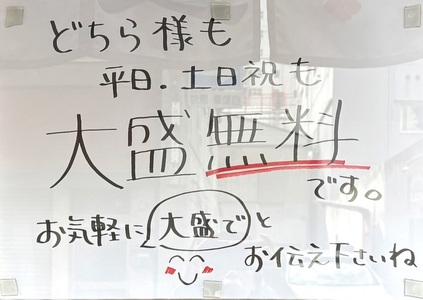 どちら様も
平日.土日祝も
大盛無料
です。
お気軽に大盛でと
お伝え下さいね